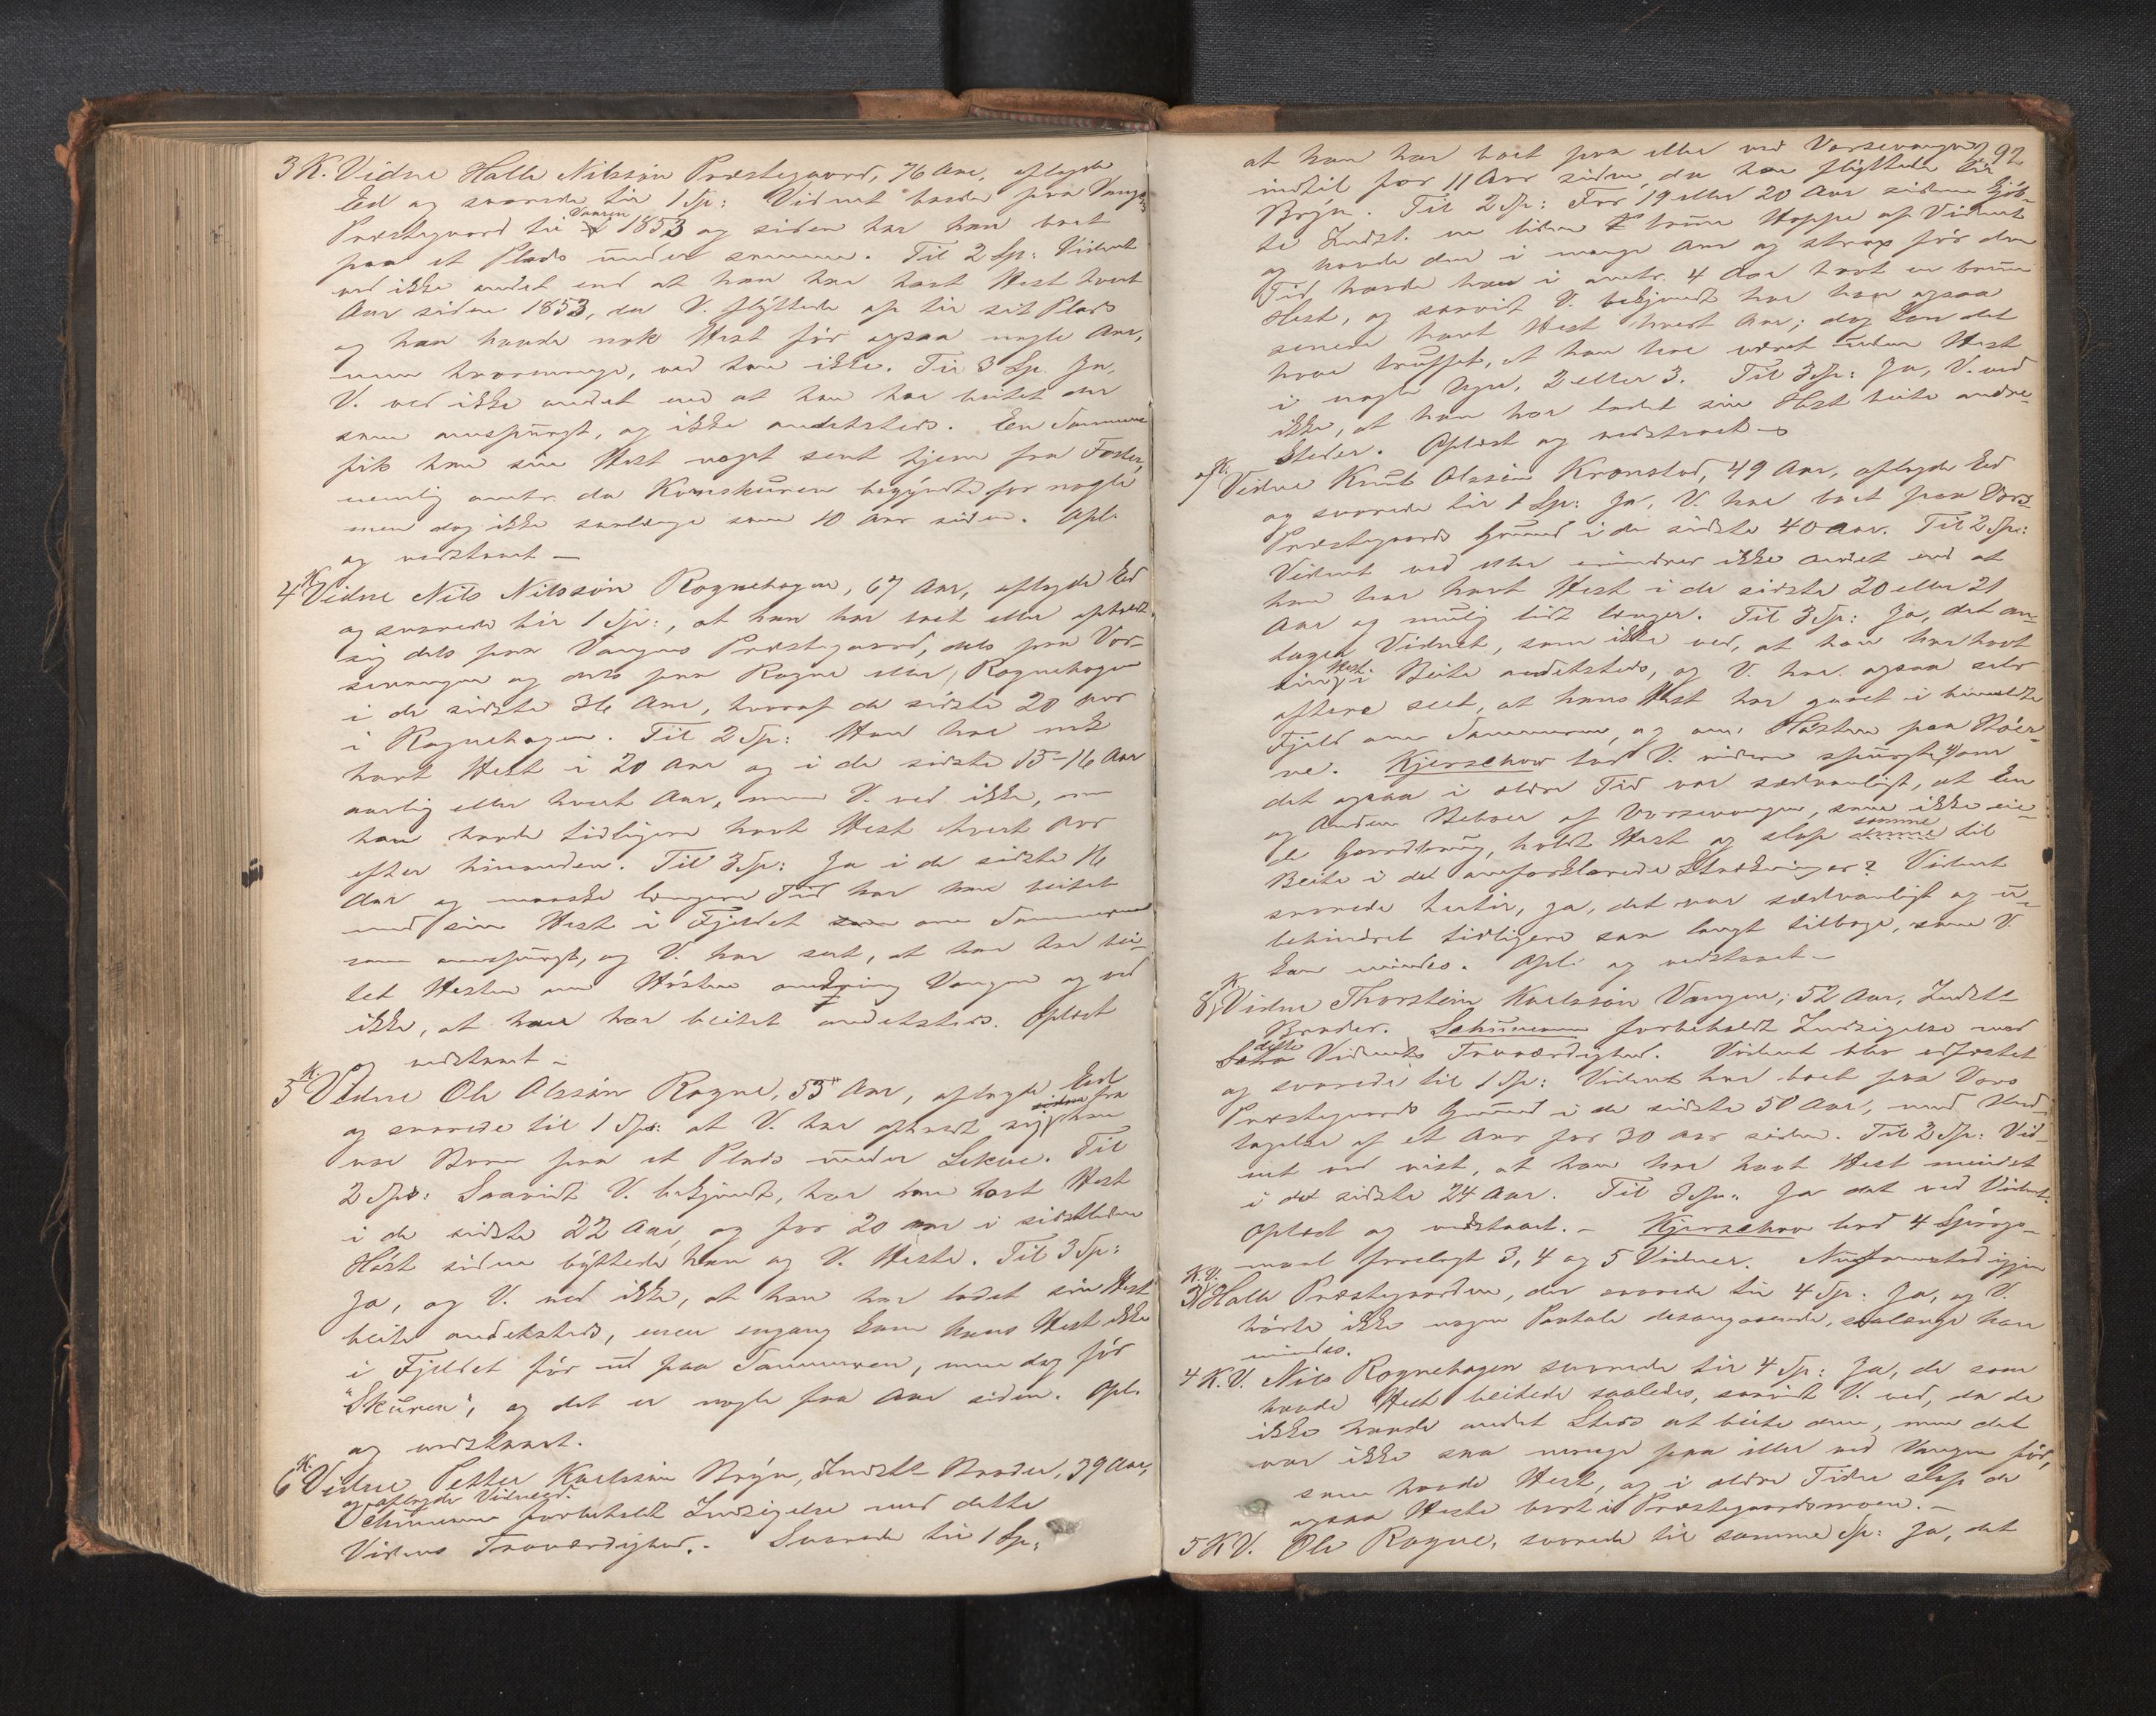 3 K. Vidne Halle Nilssön Præstegaard, 76 Aar, aflagde
Ed og svarede til 1 Sp: Vidnet boede paa Vangs
Præstegaard til Vaaren 1853 og siden har han boet
paa et Plads under samme. Til 2 Sp: Vidnet
ved ikke andet end at han har havt Hest hvert
Aar siden 1853, da V. flyttede op til sit Plads
og han havde nok Hest för ogsaa nogle Aar,
men hvormange, ved han ikke. Til 3 Sp. Ja,
V. ved ikke andet end at han har beitet der
som omspurgt, og ikke andetsteds. En Sommer
fik han sin Hest noget sent hjem fra Foster,
nemlig omtr. da Kornskuren begyndte for nogle
men dog ikke saalænge som 10 Aar siden. Opl.
og vedstaaet —
4 K. Vidne Nils Nilssön Rognehagen, 67 Aar, aflagde Ed
og svarede til 1 Sp:, at han har boet eller opholdt
sig dels paa Vangens Præstegaard, dels paa Vor-
sevangen og dels paa Rogne eller Rognehagen
i de sidste 36 Aar, hvoraf de sidste 20 Aar
i Rognehagen. Til 2 Sp: Han har nok
havt Hest i 20 Aar og i de sidste 15-16 Aar
aarlig eller hvert Aar, men V. ved ikke, om
han havde tidligere havt Hest hvert Aar
efter hinanden. Til 3 Sp: Ja i de sidste 16
Aar og maaske længere Tid har han beitet
med sin Hest i Fjeldet om Sommeren
som omspurgt, og V. har seet, at han har bei-
tet Hesten om Hösten omkring Vangen og ved
ikke, at han har beitet andetsteds. Oplæst
og vedstaaet —
5 K. Vidne Ole Olssön Rogne, 55 Aar, aflagde Ed
og svarede til 1 Sp: at V. har opholdt sig fra han
var Barn paa et Plads under Lekve. Til
2 Sp: Saavidt V. bekjendt, har han havt Hest
i de sidste 22 Aar, og for 20 Aar i sidstleden
Höst siden byttede han og V. Heste. Til 3 Sp:
Ja, og V. ved ikke, at han har ladet sin Hest
beite andetsteds, men engang kom hans Hest ikke
i Fjeldet för ud paa Sommeren, men dog för
"Skuren", og det er nogle faa Aar siden. Opl.
og vedstaaet.
6 K. Vidne Petter Karlssön Bryn, Indst. Broder, 39 Aar,
og aflagde Vidneed.
Schumann forbeholdt Indsigelse mod dette
Vidnes Troværdighed. - Svarede til 1 Sp:
292
at han har boet paa eller ved Vorsevangen
indtil for 11 Aar siden, da han flyttede til
Bryn. Til 2 Sp: For 19 eller 20 Aar siden kjöb-
te Indst. en liden brun Hoppe af Vidnet
og havde den i mange Aar og strax för den
Tid havde han i omtr. 4 Aar havt en brun
Hest, og saavidt V. bekjendt har han ogsaa
senere havt Hest hvert Aar; dog kan det
have truffet, at han har været uden Hest
i nogle Uger, 2 eller 3. Til 3 Sp: Ja, V. ved
ikke, at han har ladet sin Hest beite andre-
steder. Oplæst og vedstaaet —
7 K. Vidne Knut Olssön Kronstad, 49 Aar, aflagde Ed
og svarede til 1 Sp: Ja, V. har boet paa Vors
Præstegaards Grund i de sidste 40 Aar. Til 2 Sp:
Vidnet ved eller erindrer ikke andet end at
han har havt Hest i de sidste 20 eller 21
Aar og mulig lidt længer. Til 3 Sp: Ja, det an-
tager Vidnet, som ikke ved, at han har havt
sin Hest i Beite andetsteds, og V. har ogsaa selv
oftere seet, at hans Hest har gaaet i
Fjeld om Sommeren, og om Hösten paa Möer-
ne. Kjerschow lod V. videre spörge, om
det ogsaa i ældre Tid var sædvanligt, at En
og Anden Beboer af Vorsevangen, som ikke eie-
de Gaardbrug, holdt Hest og slap samme til
Beite i de omforklarede Strækninger? Vidnet
svarede hertil, ja, det var sædvanligt og u-
behindret tidligere saa langt tilbage, som V.
kan mindes. Opl. og vedstaaet —
8 K. Vidne Thorstein Karlssön Vangen, 52 Aar, Indst.
Broder. Schumann forbeholdt Indsigelse mod
dette Vidnets Troværdighed. Vidnet blev edfæstet
og svarede til 1 Sp: Vidnet har boet paa Vors
Præstegaards Grund i de sidste 50 Aar, med Und-
tagelse af et Aar for 30 Aar siden. Til 2 Sp: Vid-
net ved vist, at han har havt Hest mindst
i de sidste 24 Aar. Til 3 Sp: Ja det ved Vidnet.
Oplæst og vedstaaet. - Kjerschow lod 4 Spörgs-
maal forelagt 3, 4 og 5 Vidner. igjen
3 K.V. Halle Præstegaarden, der svarede til 4 Sp: Ja, og V.
hörte ikke nogen Paatale desangaaende, saalænge han
mindes.
4 K. V. Nils Rognehagen svarede til 4 Sp: Ja, de som
havde Hest beitede saaledes, saavidt V. ved, da de
ikke havde andet Steds at beite dem, men det
var ikke saa mange paa eller ved Vangen för,
som havde Hest, og i ældre Tider slap de
ogsaa Heste bort i Præstegaardsmoen. —
5 K V. Ole Rogne, svarede til samme Sp: Ja, det